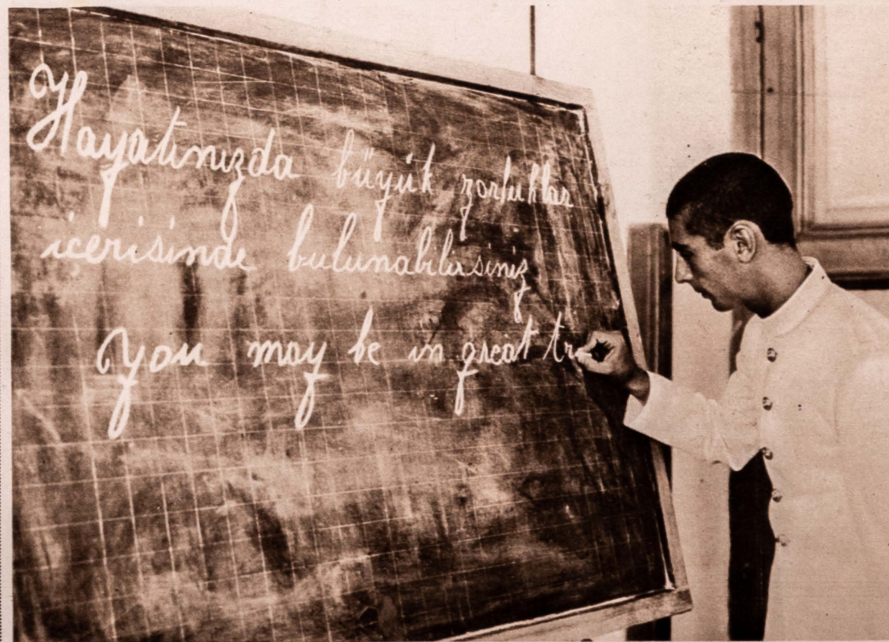 Hayatınızda büyük zorluklar
icerisinde bulunabilirsiniz
You may be in great tr